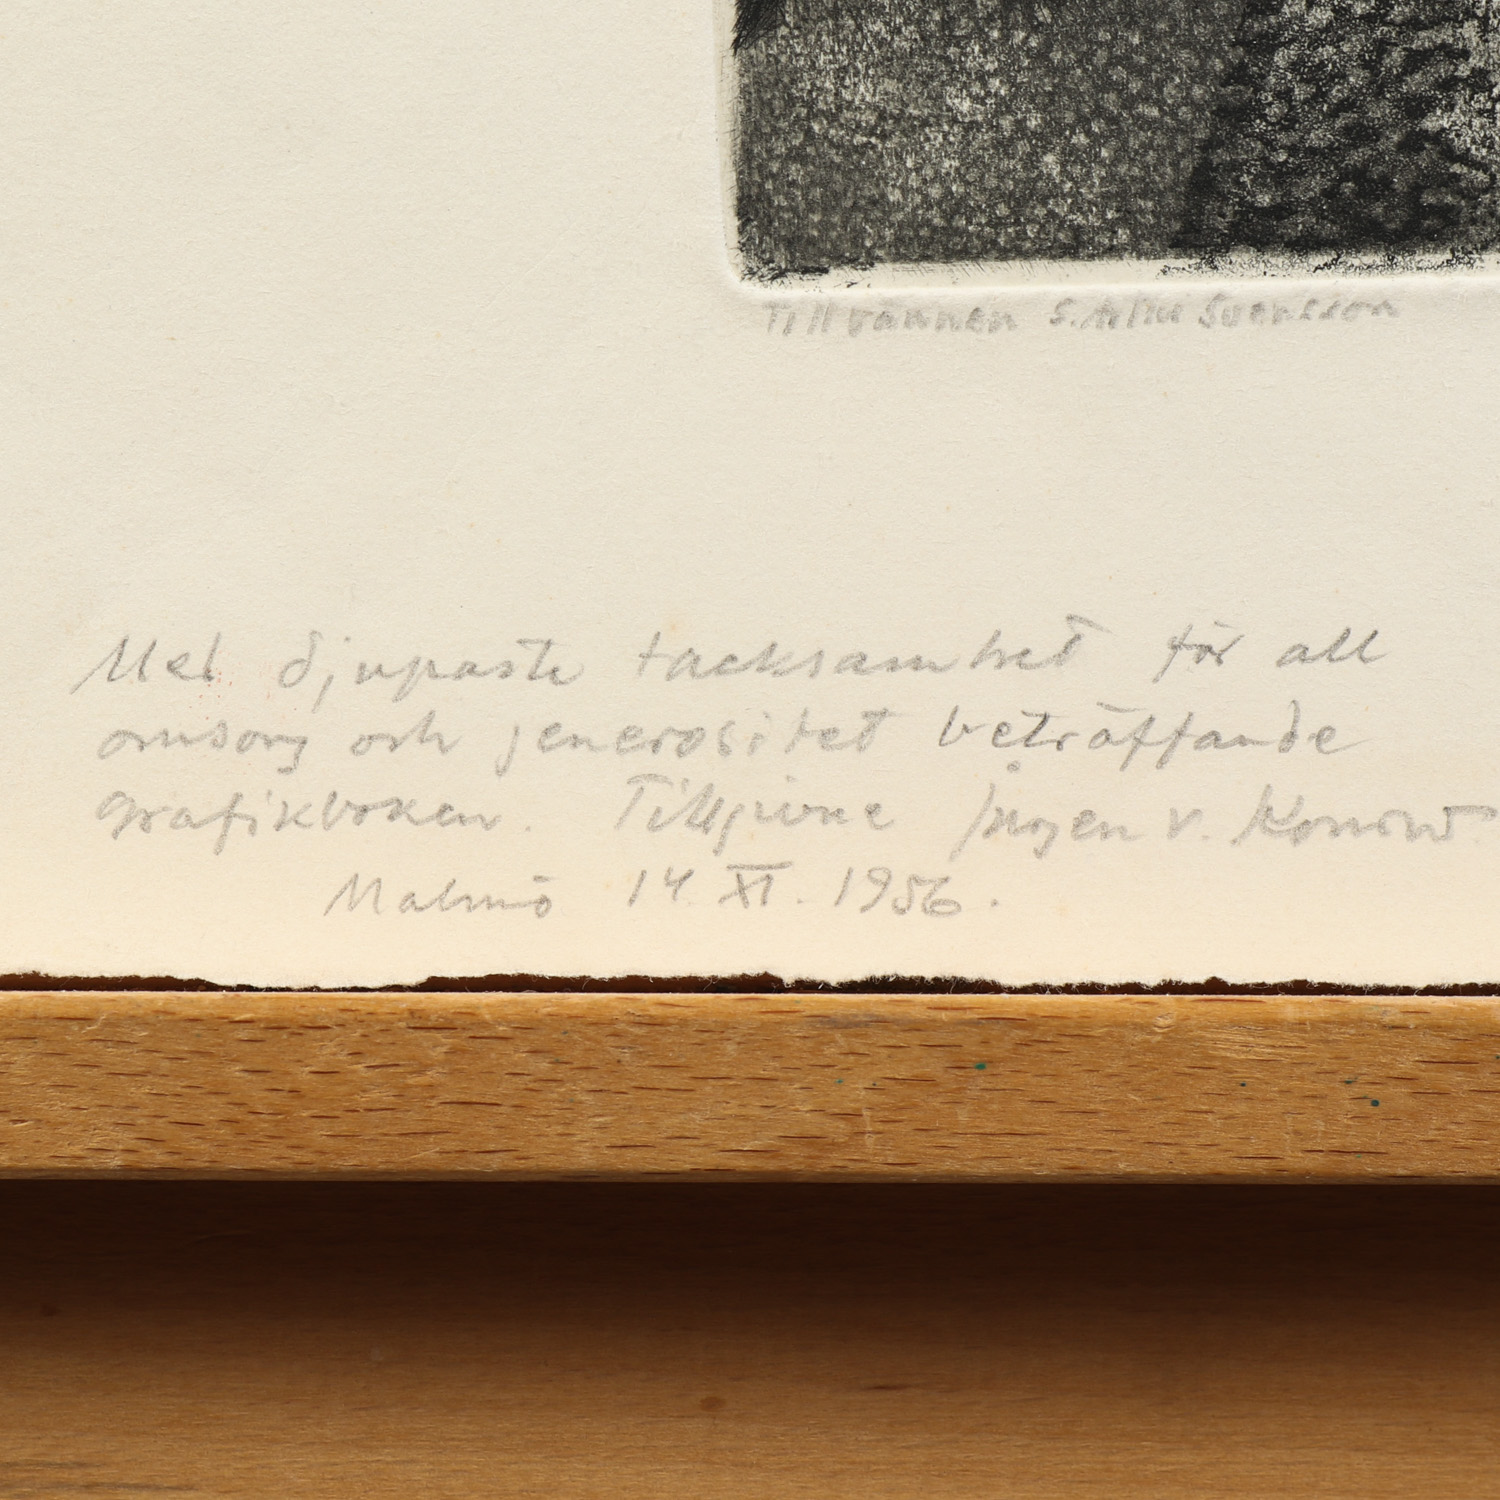 Till vännen S. Arne Svensson
Med djupaste tacksamhet för all
omsorg och generositet beträffande
grafikboken. Tillgivne Jürgen v. Konow
Malmö 14. XI. 1956.